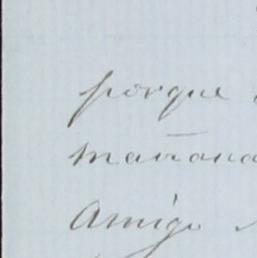 porque
mañana
Amigo